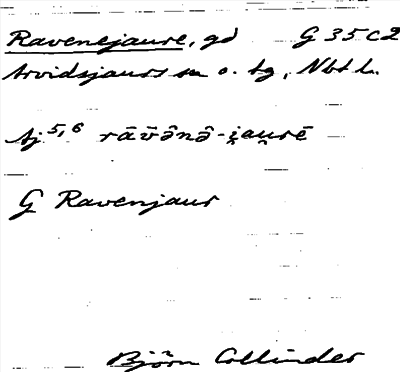 Ravenejaure, gd G 35 c2
Arvidsjaurs sn o. tg, Nbt l.
Aj 5,6 rāv̄ə̑nə̑-i̯au̯rē
G Ravenjaur
Björn Collinder